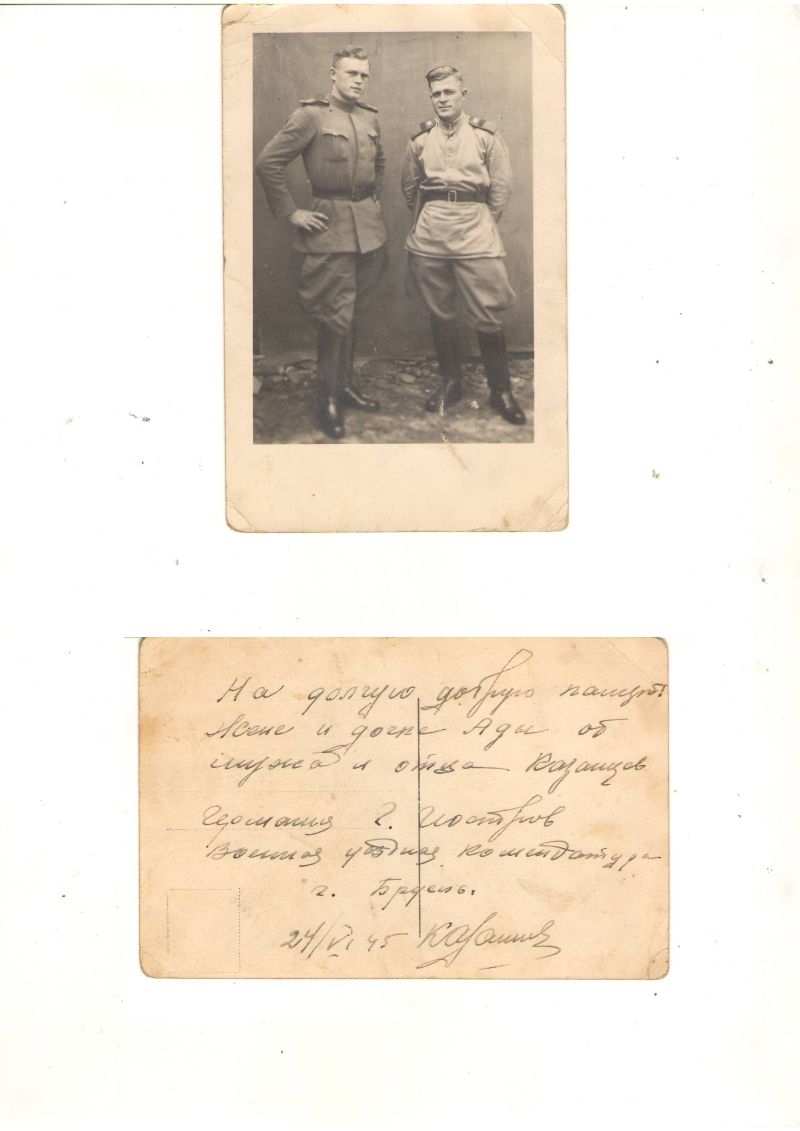 На долгую добрую память
Жене и дочке Ады от
мужа и отца Казанцев
Германия г. Гюстров
Военная уездная комендатура
г. Брусль.
24/VI 45 Казанцев